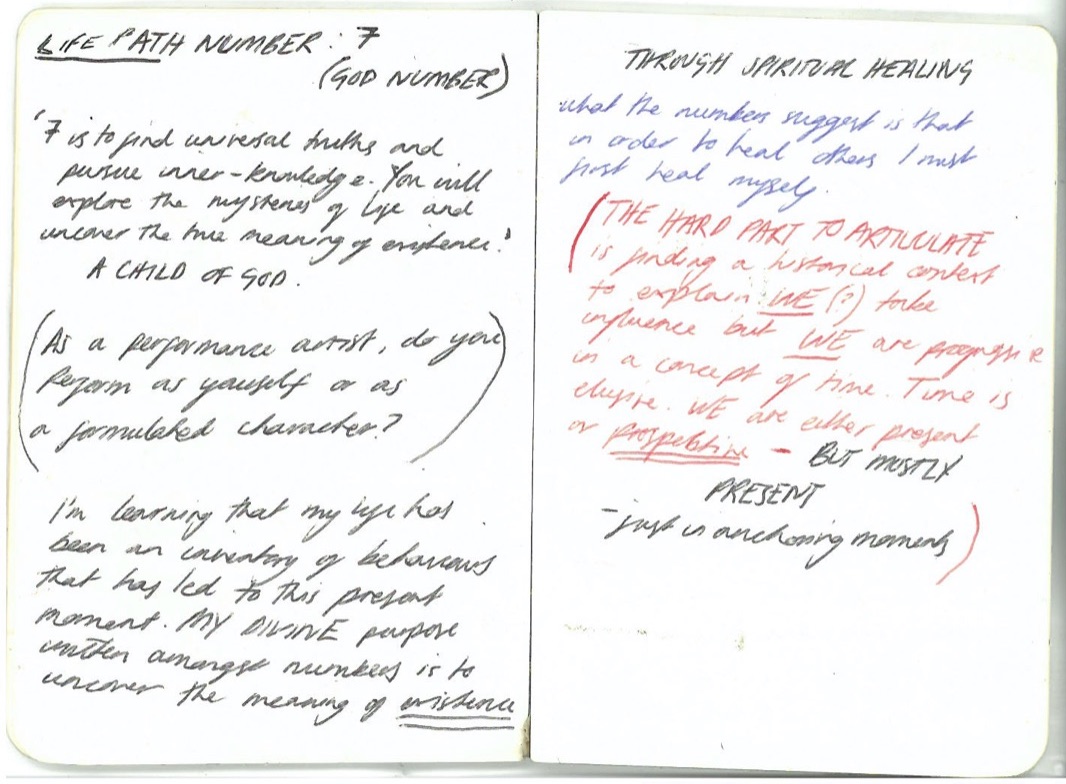 LIFE PATH NUMBER : 7
(GOD NUMBER)
'7 is to find universal truths and
pursue inner-knowledge. You will
explore the mysteries of life and
uncover the true meaning of existence.'
A CHILD OF GOD.
(As a performance artist, do you
perform as yourself or as
a formulated character?)
I'm learning that my life has
been an inventory of behaviours
that has led to this present
moment. MY DIVINE purpose
written amongst numbers is to
uncover the meaning of existence
THROUGH SPIRITUAL HEALING
what the numbers suggest is that
in order to heal others I must
first heal myself.
(THE HARD PART TO ARTICULATE
is finding a historical context
to explain WE (?) take
influence but WE are progressive
in a concept of time. Time is
elusive. WE are either present
or prospective - BUT MOSTLY
PRESENT
- just in anchoring moments)